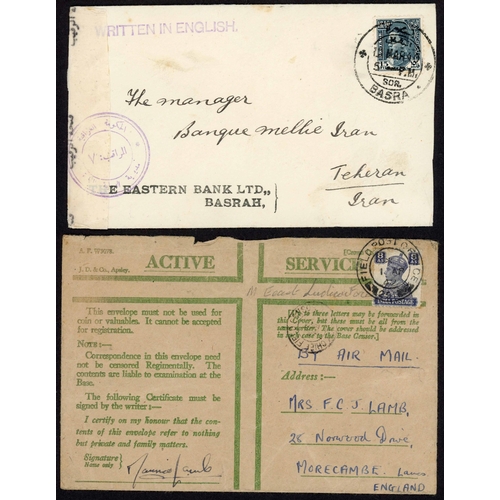 WRITTEN IN ENGLISH.
MAR
P.M.
SDR.
BASRA
The manager
Banque mellie Iran
Teheran
Iran
THE EASTERN BANK LTD.,
BASRAH,
الراتب: ٧
A. F.
J. D. & Co., Apsley.
ACTIVE
SERVICE
FIELD POST OFFICE
This envelope must not be used for
coin or valuables. It cannot be accepted
for registration.
NOTE:—
Correspondence in this envelope need
not be censored Regimentally. The
contents are liable to examination at the
Base.
The following Certificate must
be signed by the writer:—
I certify on my honour that the con-
tents of this envelope refer to nothing
but private and family matters.
Signature
Name only.
to three letters may be forwarded in
this cover, but these must be all from the
same writer. The cover should be addressed
in that case to the Base Censor.]
BY AIR MAIL.
Address:—
MRS F.C.J. LAMB,
28 Norwood Drive,
MORECAMBE. Lancs
ENGLAND